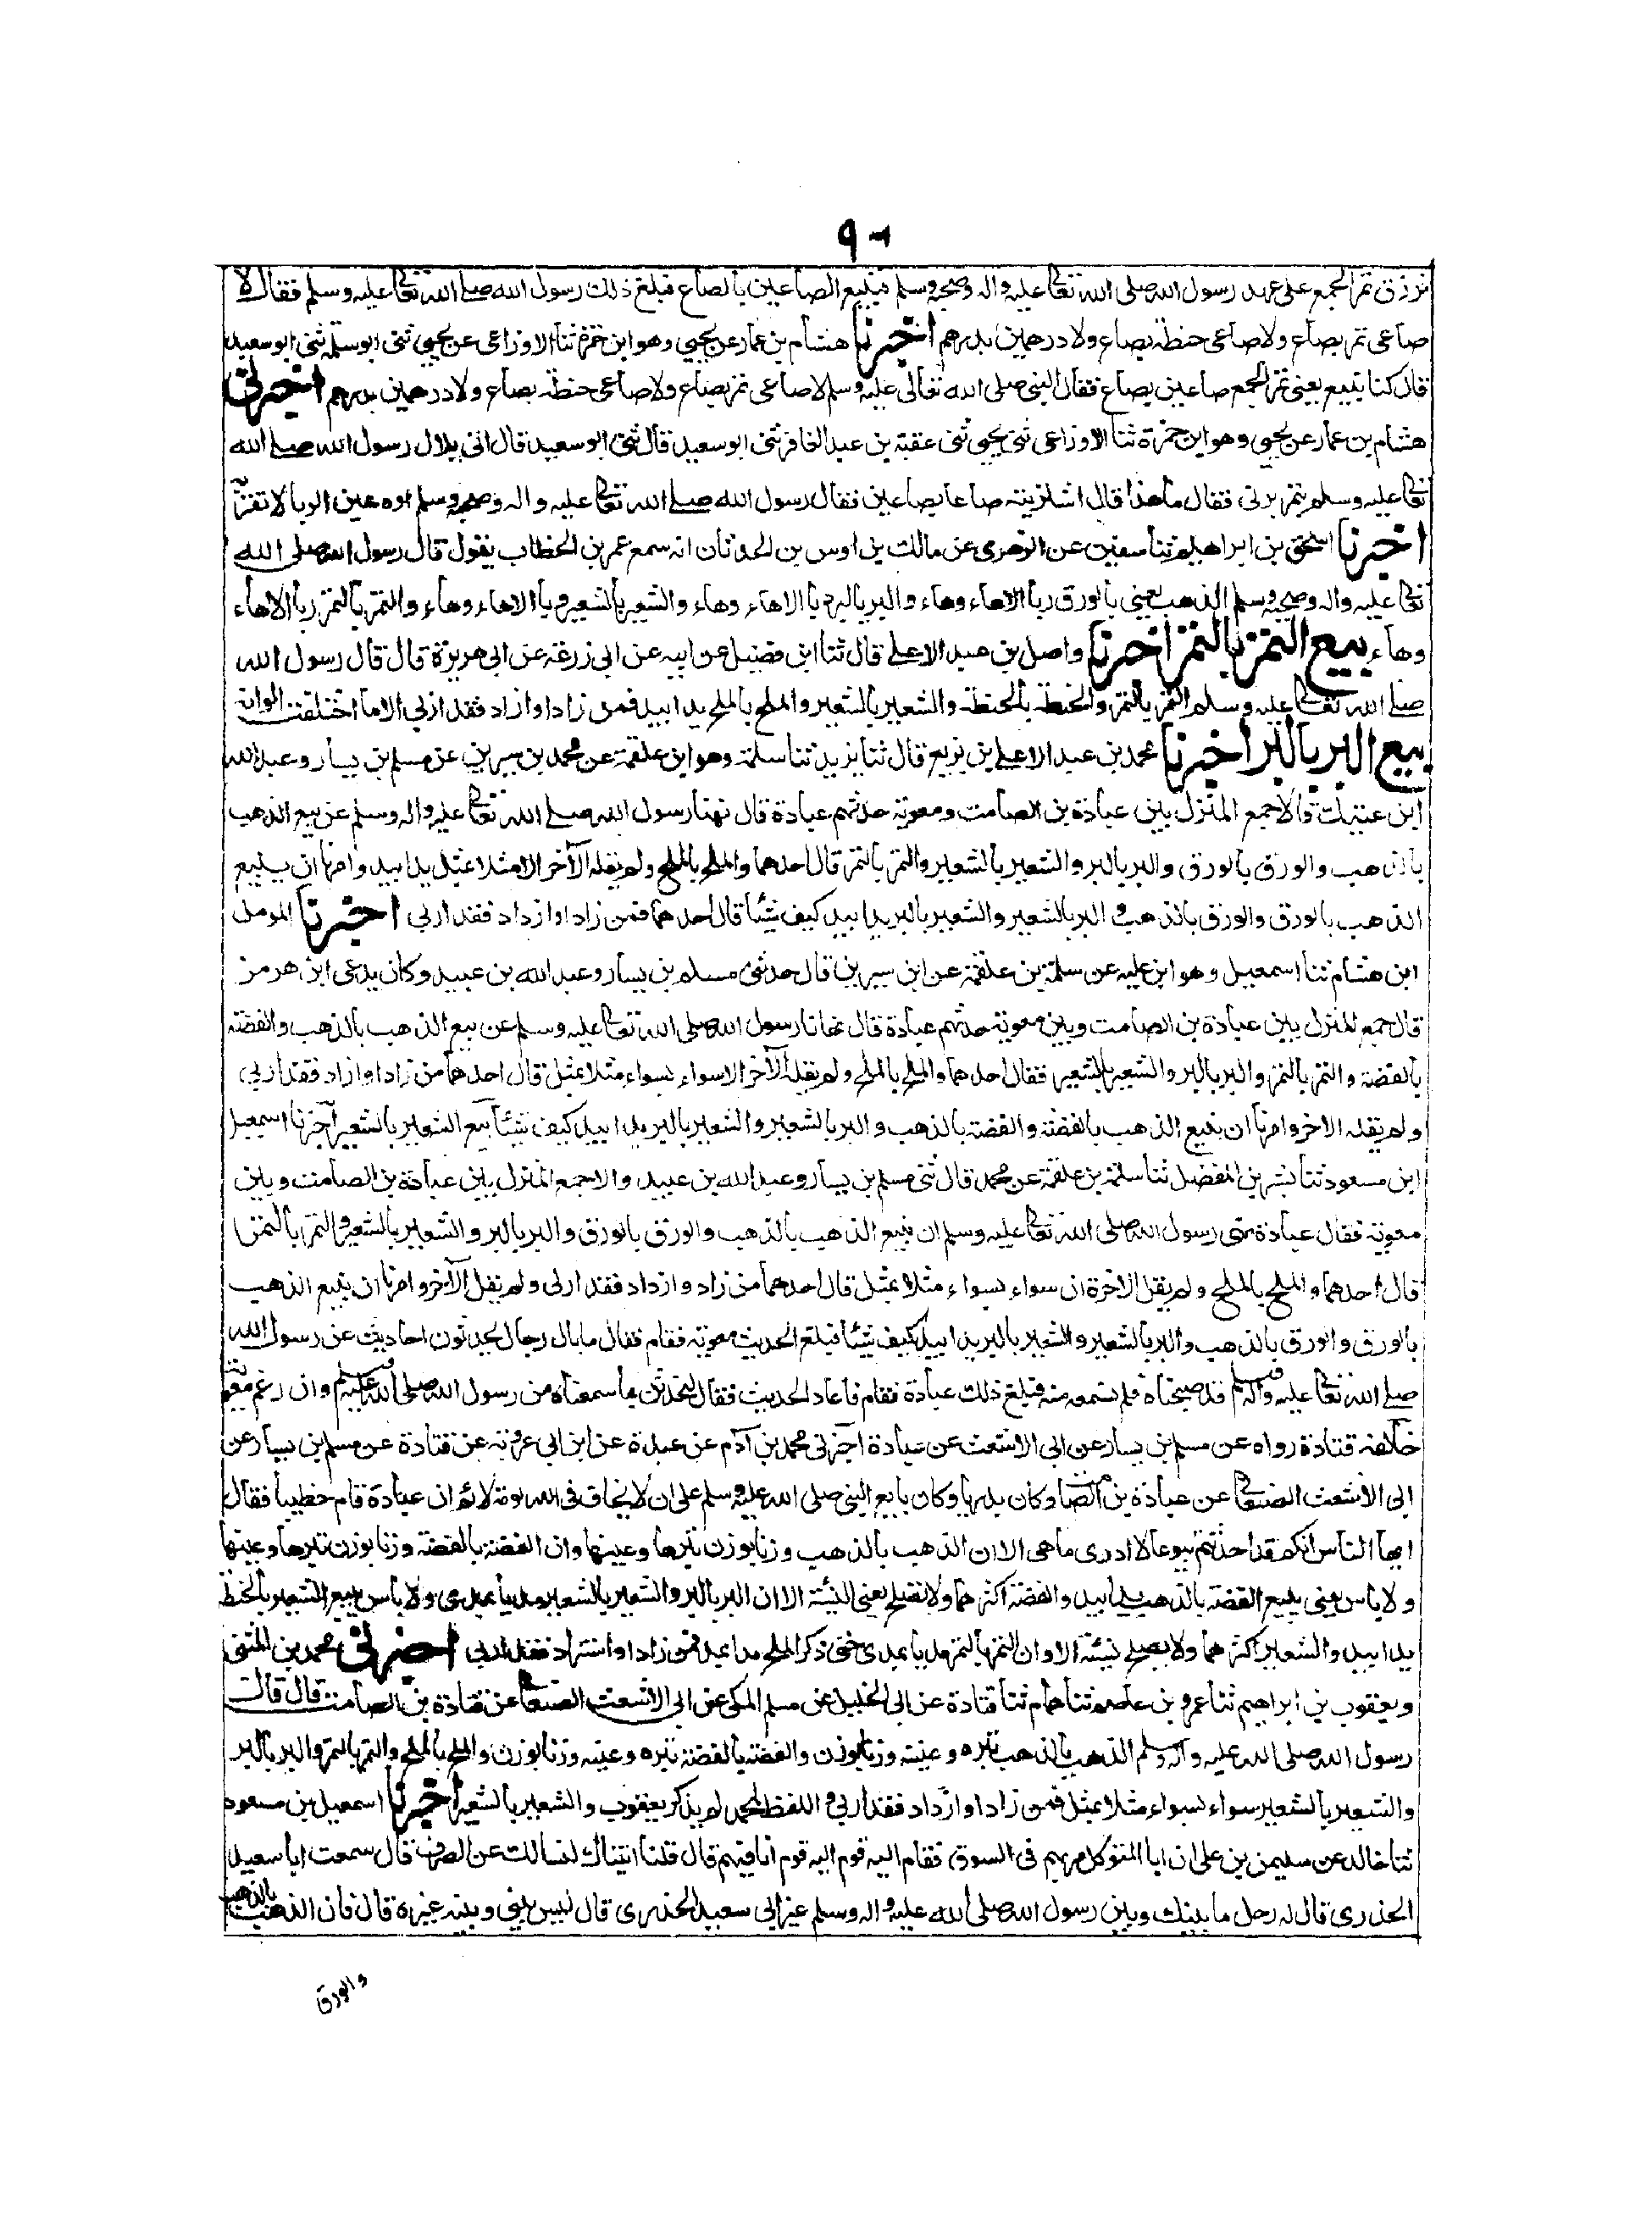 ٩٠
نرزق تمر الجمع على عهد رسول الله صلى الله تعالى عليه واله وصحبه وسلم فنبيع الصاعين بالصاع فبلغ ذلك رسول الله صلى الله تعالى عليه وسلم فقال لا
صاعى تمر بصاع ولا صاعى حنطة بصاع ولا درهمين بدرهم اخبرنا هشام بن عمار عن يحيى وهو ابن حمزة ثنا الاوزاعى عن يحيى ثنى ابو سلمة ثنى ابو سعيد
قال كنا نبيع يعنى تمر الجمع صاعين بصاع فقال النبى صلى الله تعالى عليه وسلم لا صاعى تمر بصاع ولا صاعى حنطة بصاع ولا درهمين بدرهم اخبرنى
هشام بن عمار عن يحيى وهو ابن حمزة ثنا الاوزاعى ثنى يحيى ثنى عقبة بن عبد الغافر ثنى ابو سعيد قال ثنى ابو سعيد قال اتى بلال رسول الله صلى الله
تعالى عليه وسلم بتمر برنى فقال ما هذا قال اشتريته صاعا بصاعين فقال رسول الله صلى الله تعالى عليه واله وصحبه وسلم اوه عين الربا لا تقربه
اخبرنا اسحق بن ابراهيم ثنا سفين عن الزهرى عن مالك بن اوس بن الحدثان انه سمع عمر بن الخطاب يقول قال رسول الله صلى الله
تعالى عليه واله وصحبه وسلم الذهب يعنى بالورق ربا الا هاء وهاء والبر بالبر ربا الا هاء وهاء والشعير بالشعير ربا الا هاء وهاء والتمر بالتمر ربا الا هاء
وهاء بيع التمر بالتمر اخبرنا واصل بن عبد الاعلى قال ثنا ابن فضيل عن ابيه عن ابى زرعة عن ابى هريرة قال قال رسول الله
صلى الله تعالى عليه وسلم التمر بالتمر والحنطة بالحنطة والشعير بالشعير والملح بالملح يدا بيد فمن زاد او ازداد فقد اربى الا ما اختلفت الوانه
بيع البر بالبر اخبرنا محمد بن عبد الاعلى بن بزيع قال ثنا يزيد ثنا سلمة وهو ابن علقمة عن محمد بن سيرين عن مسلم بن يسار وعبد الله
ابن عتيك قالا جمع المنزل بين عبادة بن الصامت ومعوية حدثهم عبادة قال نهنا رسول الله صلى الله تعالى عليه واله وسلم عن بيع الذهب
بالذهب والورق بالورق والبر بالبر والشعير بالشعير والتمر بالتمر قال احدهما والملح بالملح ولم يقله الآخر الا مثلا بمثل يدا بيد وامرنا ان نبيع
الذهب بالورق والورق بالذهب و البر بالشعير والشعير بالبر يدا بيد كيف شئنا قال احدهما فمن زاد او ازداد فقد اربى اخبرنا المومل
ابن هشام ثنا اسمعيل وهو ابن علية عن سلمة بن علقمة عن ابن سيرين قال حدثنى مسلم بن يسار وعبد الله بن عبيد وكان يدعى ابن هرمز
قال جمع المنزل بين عبادة بن الصامت وبين معوية حدثهم عبادة قال نهانا رسول الله صلى الله تعالى عليه وسلم عن بيع الذهب بالذهب والفضة
بالفضة والتمر بالتمر والبر بالبر والشعير بالشعير فقال احدهما والملح بالملح ولم يقله الآخر الا سواء بسواء مثلا بمثل قال احدهما من زاد او ازاد فقد اربى
ولم يقله الاخر وامرنا ان نبيع الذهب بالفضة والفضة بالذهب و البر بالشعير والشعير بالبر يدا بيد كيف شئنا بيع الشعير بالشعير اخبرنا اسمعيل
ابن مسعود ثنا بشر بن المفضل ثنا سلمة بن علقمة عن محمد قال ثنى مسلم بن يسار وعبد الله بن عبيد والا جمع المنزل بين عبادة بن الصامت وبين
معوية فقال عبادة نهى رسول الله صلى الله تعالى عليه وسلم ان نبيع الذهب بالذهب والورق بالورق والبر بالبر والشعير بالشعير والتمر بالتمر
قال احدهما والملح بالملح ولم يقل الاخر ان سواء بسواء مثلا بمثل قال احدهما من زاد و ازداد فقد اربى ولم يقل الآخر وامرنا ان نبيع الذهب
بالورق والورق بالذهب والبر بالشعير والشعير بالبر يدا بيد كيف شئنا فبلغ الحديث معوية فقام فقال ما بال رجال يحدثون احاديث عن رسول الله
صلى الله تعالى عليه واله وسلم قد صحبناه فلم نسمعه منه فبلغ ذلك عبادة فقام فاعاد الحديث فقال لنحدثن بما سمعناه من رسول الله صلى الله عليه وسلم وان رغم معوية
خالفه قتادة رواه عن مسلم بن يسار عن ابى الاشعث عن عبادة اخبرنى محمد بن آدم عن عبدة عن ابن ابى عروبة عن قتادة عن مسلم بن يسار عن
ابى الاشعث الصنعانى عن عبادة بن الصامت وكان بدريا وكان بايع النبى صلى الله عليه وسلم على ان لا يخاف فى الله لومة لائم ان عبادة قام خطيبا فقال
ايها الناس انكم قد احدثتم بيوعا لا ادرى ما هى الا ان الذهب بالذهب وزنا بوزن تبرها وعينها وان الفضة بالفضة وزنا بوزن تبرها وعينها
ولا باس يعنى ببيع الفضة بالذهب يدا بيد والفضة اكثرهما ولا تصلح يعنى النسئة الا ان البر بالبر والشعير بالشعير مديا بمدى ولا باس ببيع الشعير بالحنطة
يدا بيد والشعير اكثرهما ولا يصلح نسئة الا وان التمر بالتمر مديا بمدى حتى ذكر الملح مدا بمد فمن زاد او استزاد فقد اربى اخبرنى محمد بن المثنى
ويعقوب بن ابراهيم ثنا عمرو بن عاصم ثنا همام ثنا قتادة عن ابى الخليل عن مسلم المكى عن ابى الاشعث الصنعانى عن عبادة بن الصامت قال قال
رسول الله صلى الله عليه واله وسلم الذهب بالذهب تبره وعينه وزنا بوزن والفضة بالفضة تبره وعينه وزنا بوزن والملح بالملح والتمر بالتمر والبر بالبر
والشعير بالشعير سواء بسواء مثلا بمثل فمن زاد او ازداد فقد اربى و اللفظ لمحمد لم يذكر يعقوب والشعير بالشعير اخبرنا اسمعيل بن مسعود
ثنا خالد عن سليمن بن على ان ابا المتوكل مر بهم فى السوق فقام اليه قوم اليه قوم انا فيهم قال قلنا اتيناك لنسالك عن الصرف قال سمعت ابا سعيد
الخدرى قال له رجل ما بينك وبين رسول الله صلى الله عليه واله وسلم غير ابى سعيد الخدرى قال ليس بينى وبينه غيره قال فان الذهب بالذهب
والورق